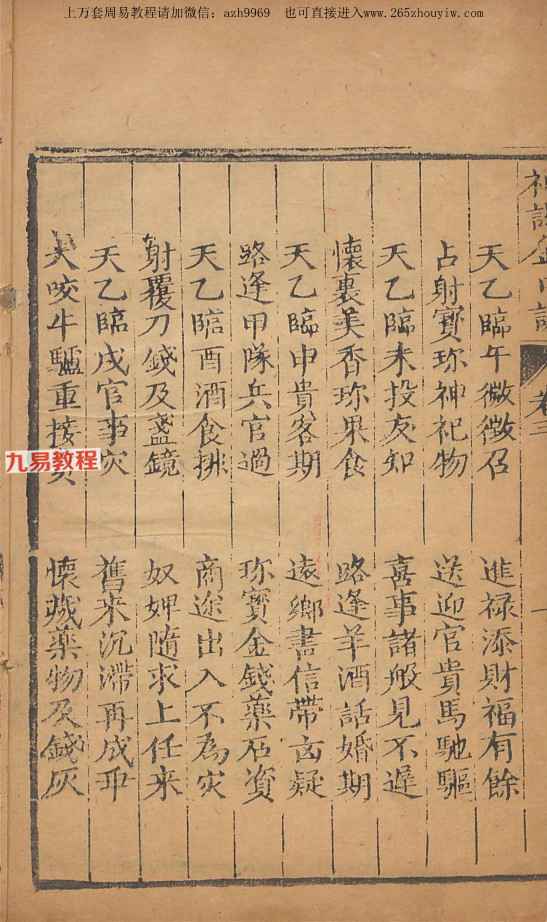 上万套周易教程请加微信：azh9969 也可直接进入www.265zhouyiw.com
卷三
天乙臨午微徵召 進禄添財福有餘
占射寶珎神祀物 送迎官貴馬馳驅
天乙臨未投友知 喜事諸般見不遲
懷裏美香珎果食 路逢羊酒話婚期
天乙臨申貴客期 遠鄉書信帶凶疑
路逢甲隊兵官過 珎寳金錢藥石資
天乙臨酉酒食排 商途出入不為灾
射覆刀錢及盞鏡 奴婢隨求上任来
天乙臨戌官事灾 舊来沉滯再成
犬咬牛驢重接 懷藏藥物及錢灰
九易教程